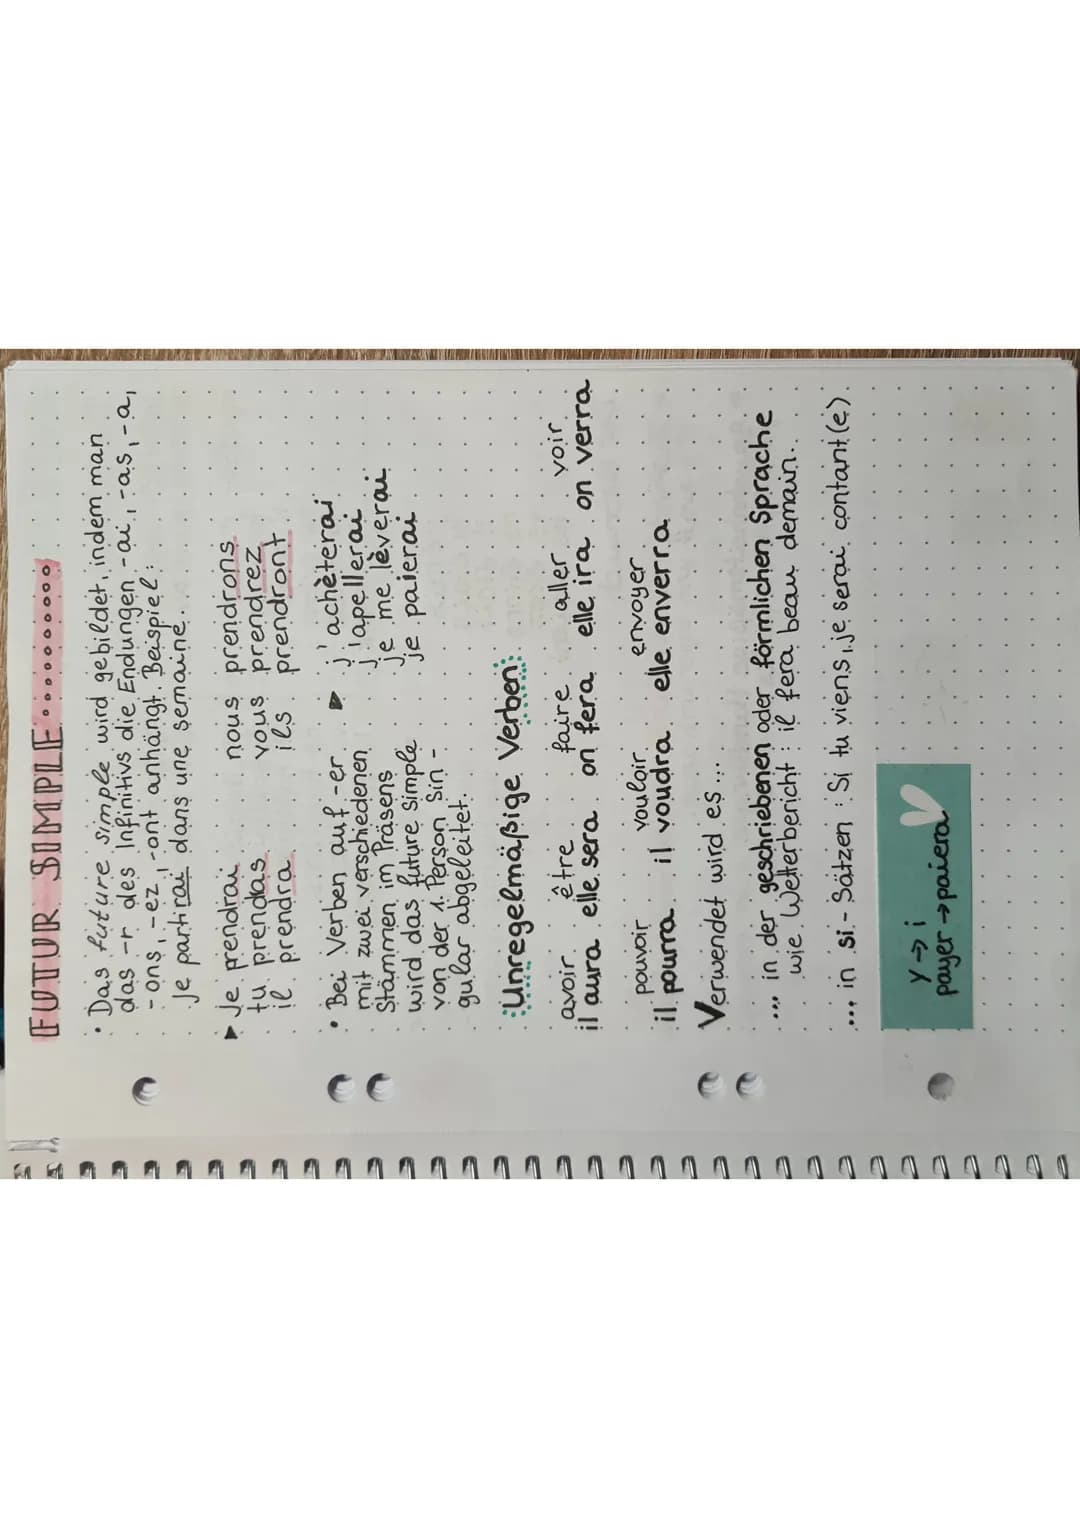 FUTUR SIMPLE
• Das future simple wird gebildet, indem man
das -r des Infinitivs die Endungen -ai, -as, -a,
-ons, -ez, -ont anhängt. Beispiel:
Je partirai dans une semaine.
▸ je prendrai nous prendrons
tu prendas vous prendrez
il prendra ils prendront
• Bei Verben auf -er
mit zwei verschiedenen
Stämmen im Präsens
wird das future simple
von der 1. Person Sin-
gular abgeleitet.
▸ j'achèterai
j'apellerai
je me lèverai
je paierai
Unregelmäßige Verben:
avoir être faire aller voir
il aura elle sera on fera elle ira on verra
pouvoir vouloir envoyer
il pourra il voudra elle enverra
Verwendet wird es...
... in der geschriebenen oder förmlichen Sprache
wie Wetterbericht: il fera beau demain.
... in si-Sätzen: Si tu viens, je serai contant(e)
y → i
payer → paiera